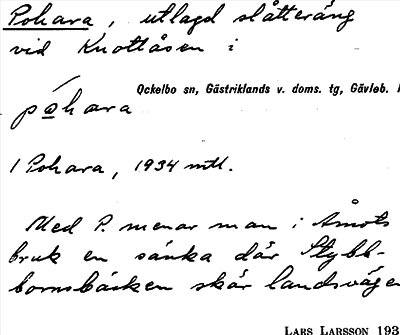 Pohara, utlagd slåtteräng
vid Knottåsen i
Ockelbo sn, Gästriklands v. doms. tg, Gävleb.
påhara
1 Pohara, 1934 mtl.
Med P. menar man i Åmots
bruk en sänka där Stybb-
bornsbäcken skär landsvägen
LARS LARSSON 193